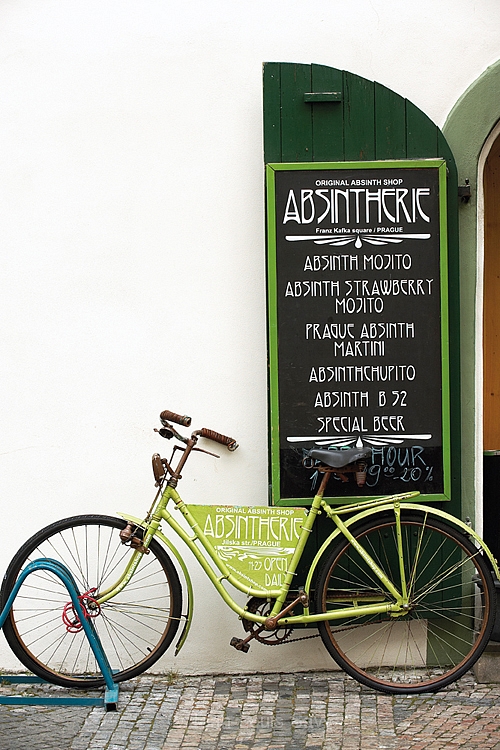 ORIGINAL ABSINTH SHOP
ABSINTHERIE
Franz Kafka square / PRAGUE
ABSINTH MOJITO
ABSINTH STRAWBERRY
MOJITO
PRAGUE ABSINTH
MARTINI
ABSINTHCHUPITO
ABSINTH B 52
SPECIAL BEER
HOUR
20%
ORIGINAL ABSINTH SHOP
ABSINTHERIE
Jilska str./PRAGUE
OPEN
DAILY